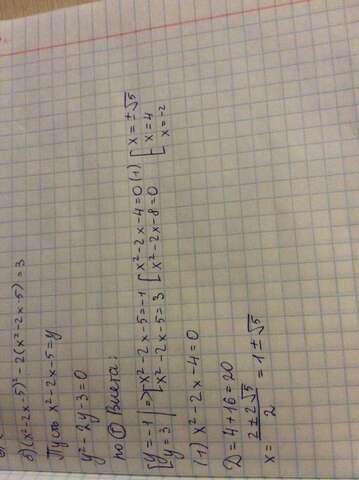 б) (x²-2x-5)² - 2(x²-2x-5) = 3
Пусть x²-2x-5=y
y²-2y-3=0
по Ⓣ Виета:
[y=-1 | => [x²-2x-5=-1 [x²-2x-4=0 (1) [x=±√5
y=3 | x²-2x-5=3 x²-2x-8=0 x=4
x=-2
(1) x²-2x-4=0
D=4+16=20
x= 2±2√5/2 = 1±√5